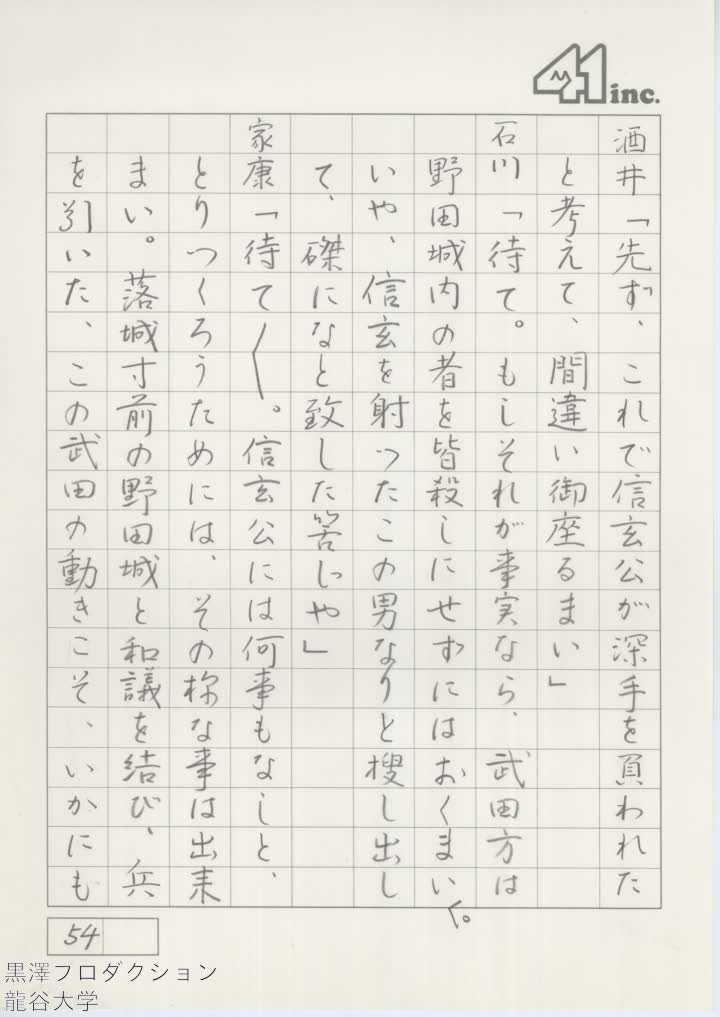 41 inc.
酒井「先ず、これで信玄公が深手を負われた
と考えて、間違い御座るまい」
石川「待て。もしそれが事実なら、武田方は
野田城内の者を皆殺しにせずにはおくまい。
いや、信玄を射ったこの男なりと捜し出し
て、磔になと致した筈じや」
家康「待て〱。信玄公には何事もなしと、
とりつくろうためには、その様な事は出来
まい。落城寸前の野田城と和議を結び、兵
を引いた、この武田の動きこそ、いかにも
54
黒澤プロダクション
龍谷大学